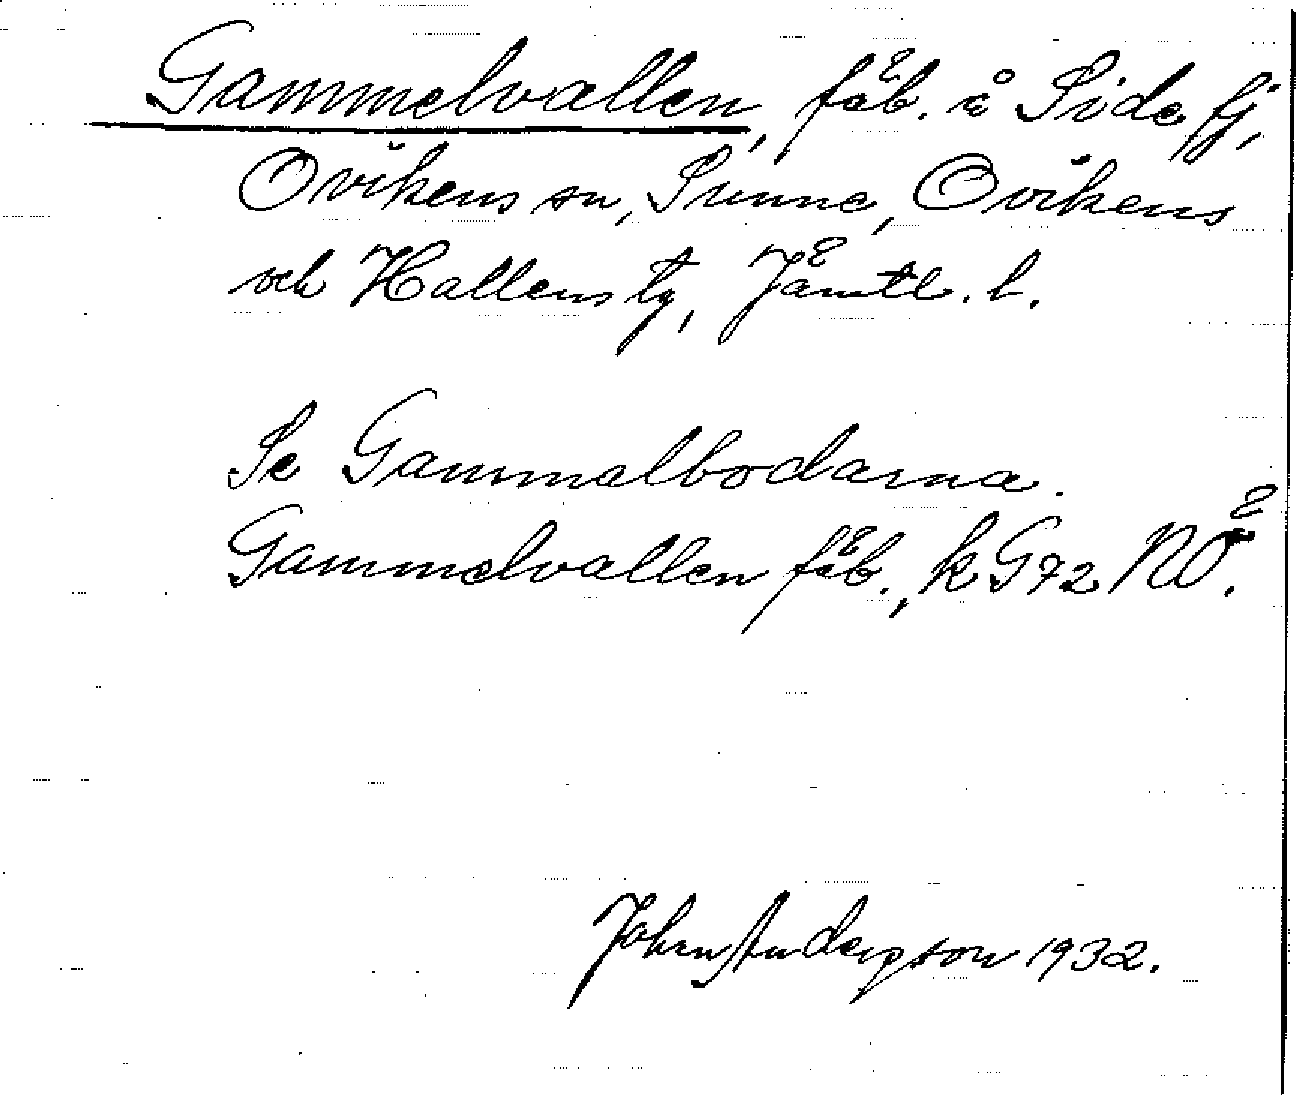 Gammelvallen, fäb. å Side fj,
Ovikens sn, Sunne, Ovikens
och Hallens tg, Jämtl. l.
Se Gammalbodarna.
Gammelvallen fäb., k G72 NÖ.
John Anderson 1932.